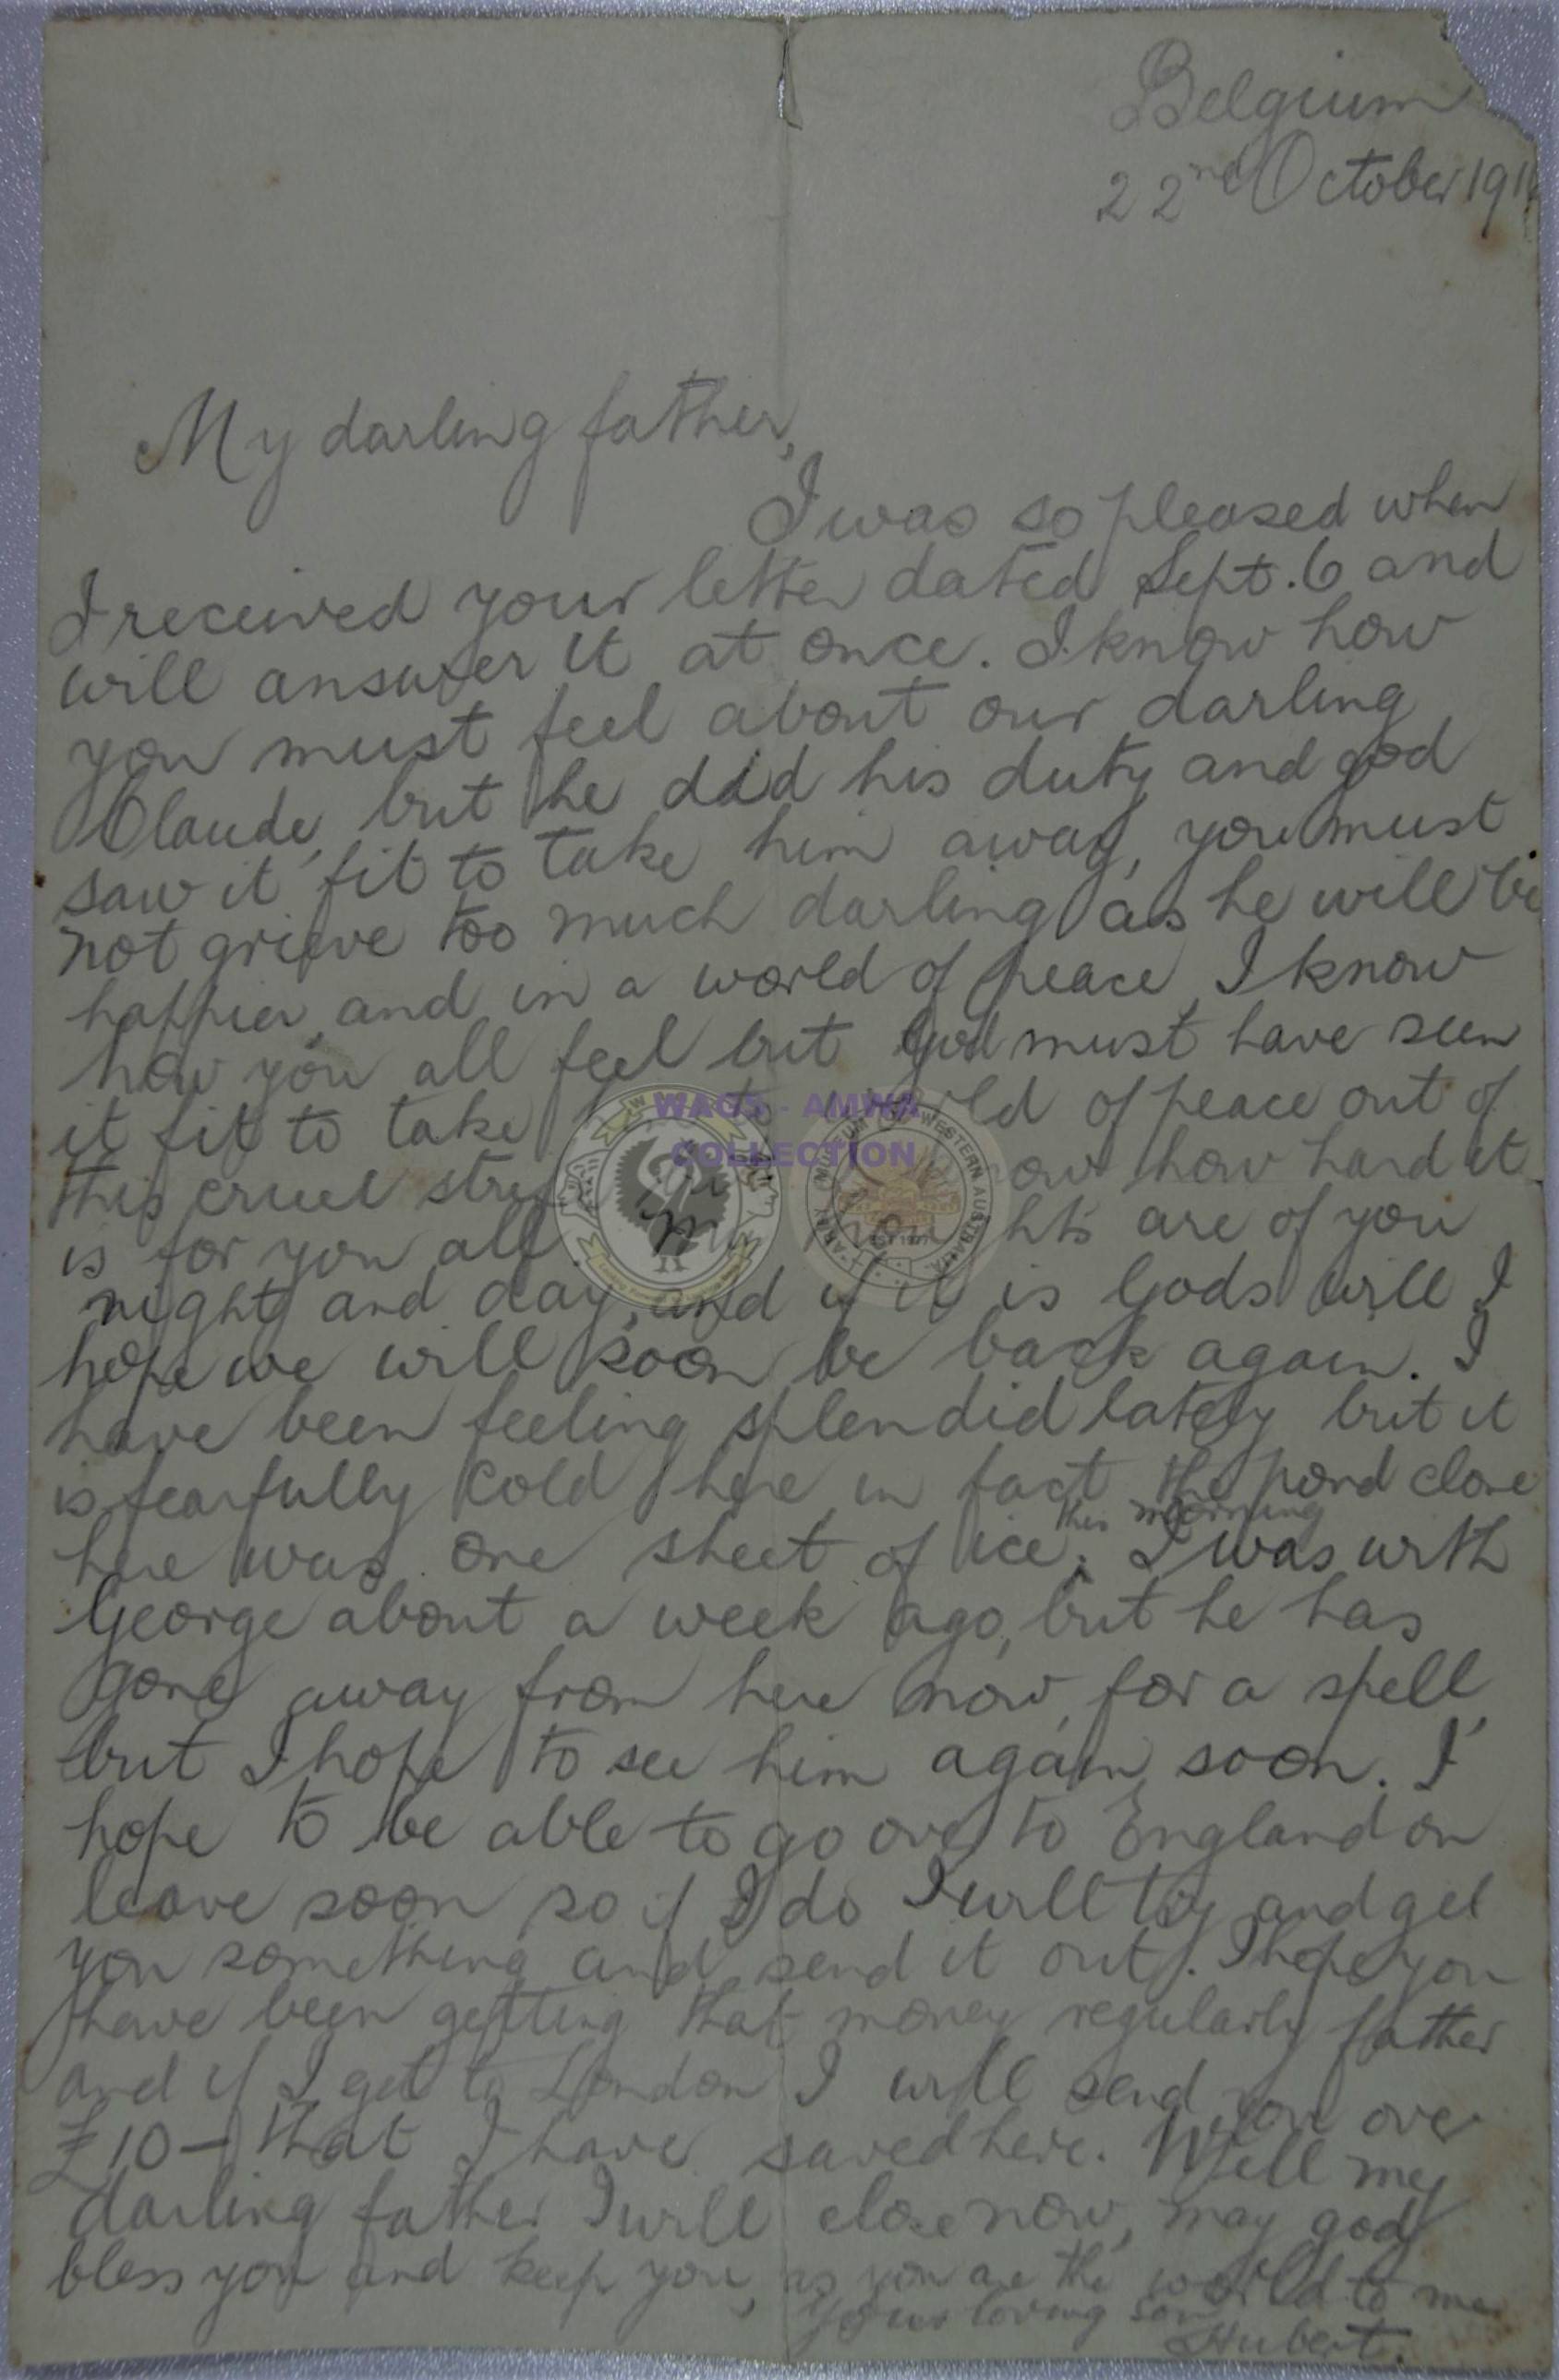 Belgium
22nd October 191
My darling father,
I was so pleased when
I received your letter dated Sept. 6 and
will answer it at once. I know how
you must feel about our darling
Claude, but he did his duty and god
saw it fit to take him away, you must
not grieve too much darling as he will be
happier and in a world of peace, I know
how you all feel but God must have seen
it fit to take of peace out of
this cruel how hard it
is for you all my are of you
night and day, and if it is Gods will I
hope we will soon be back again. I
have been feeling splendid lately but it
is fearfully cold here in fact the pond close
here was one sheet of ice this morning. I was with
George about a week ago, but he has
gone away from here now, for a spell,
but I hope to see him again soon. I
hope to be able to go over to England on
leave soon so if I do I will try and get
you something and send it out. I hope you
have been getting that money regularly father
and if I get to London I will send you over
£10- that I have saved here. Well my
darling father I will close now, may god
bless you and keep you, as you are the world to me
Your loving son
Hubert.
WAGS - AMWA
COLLECTION
WESTERN AUSTRALIA
ARMY